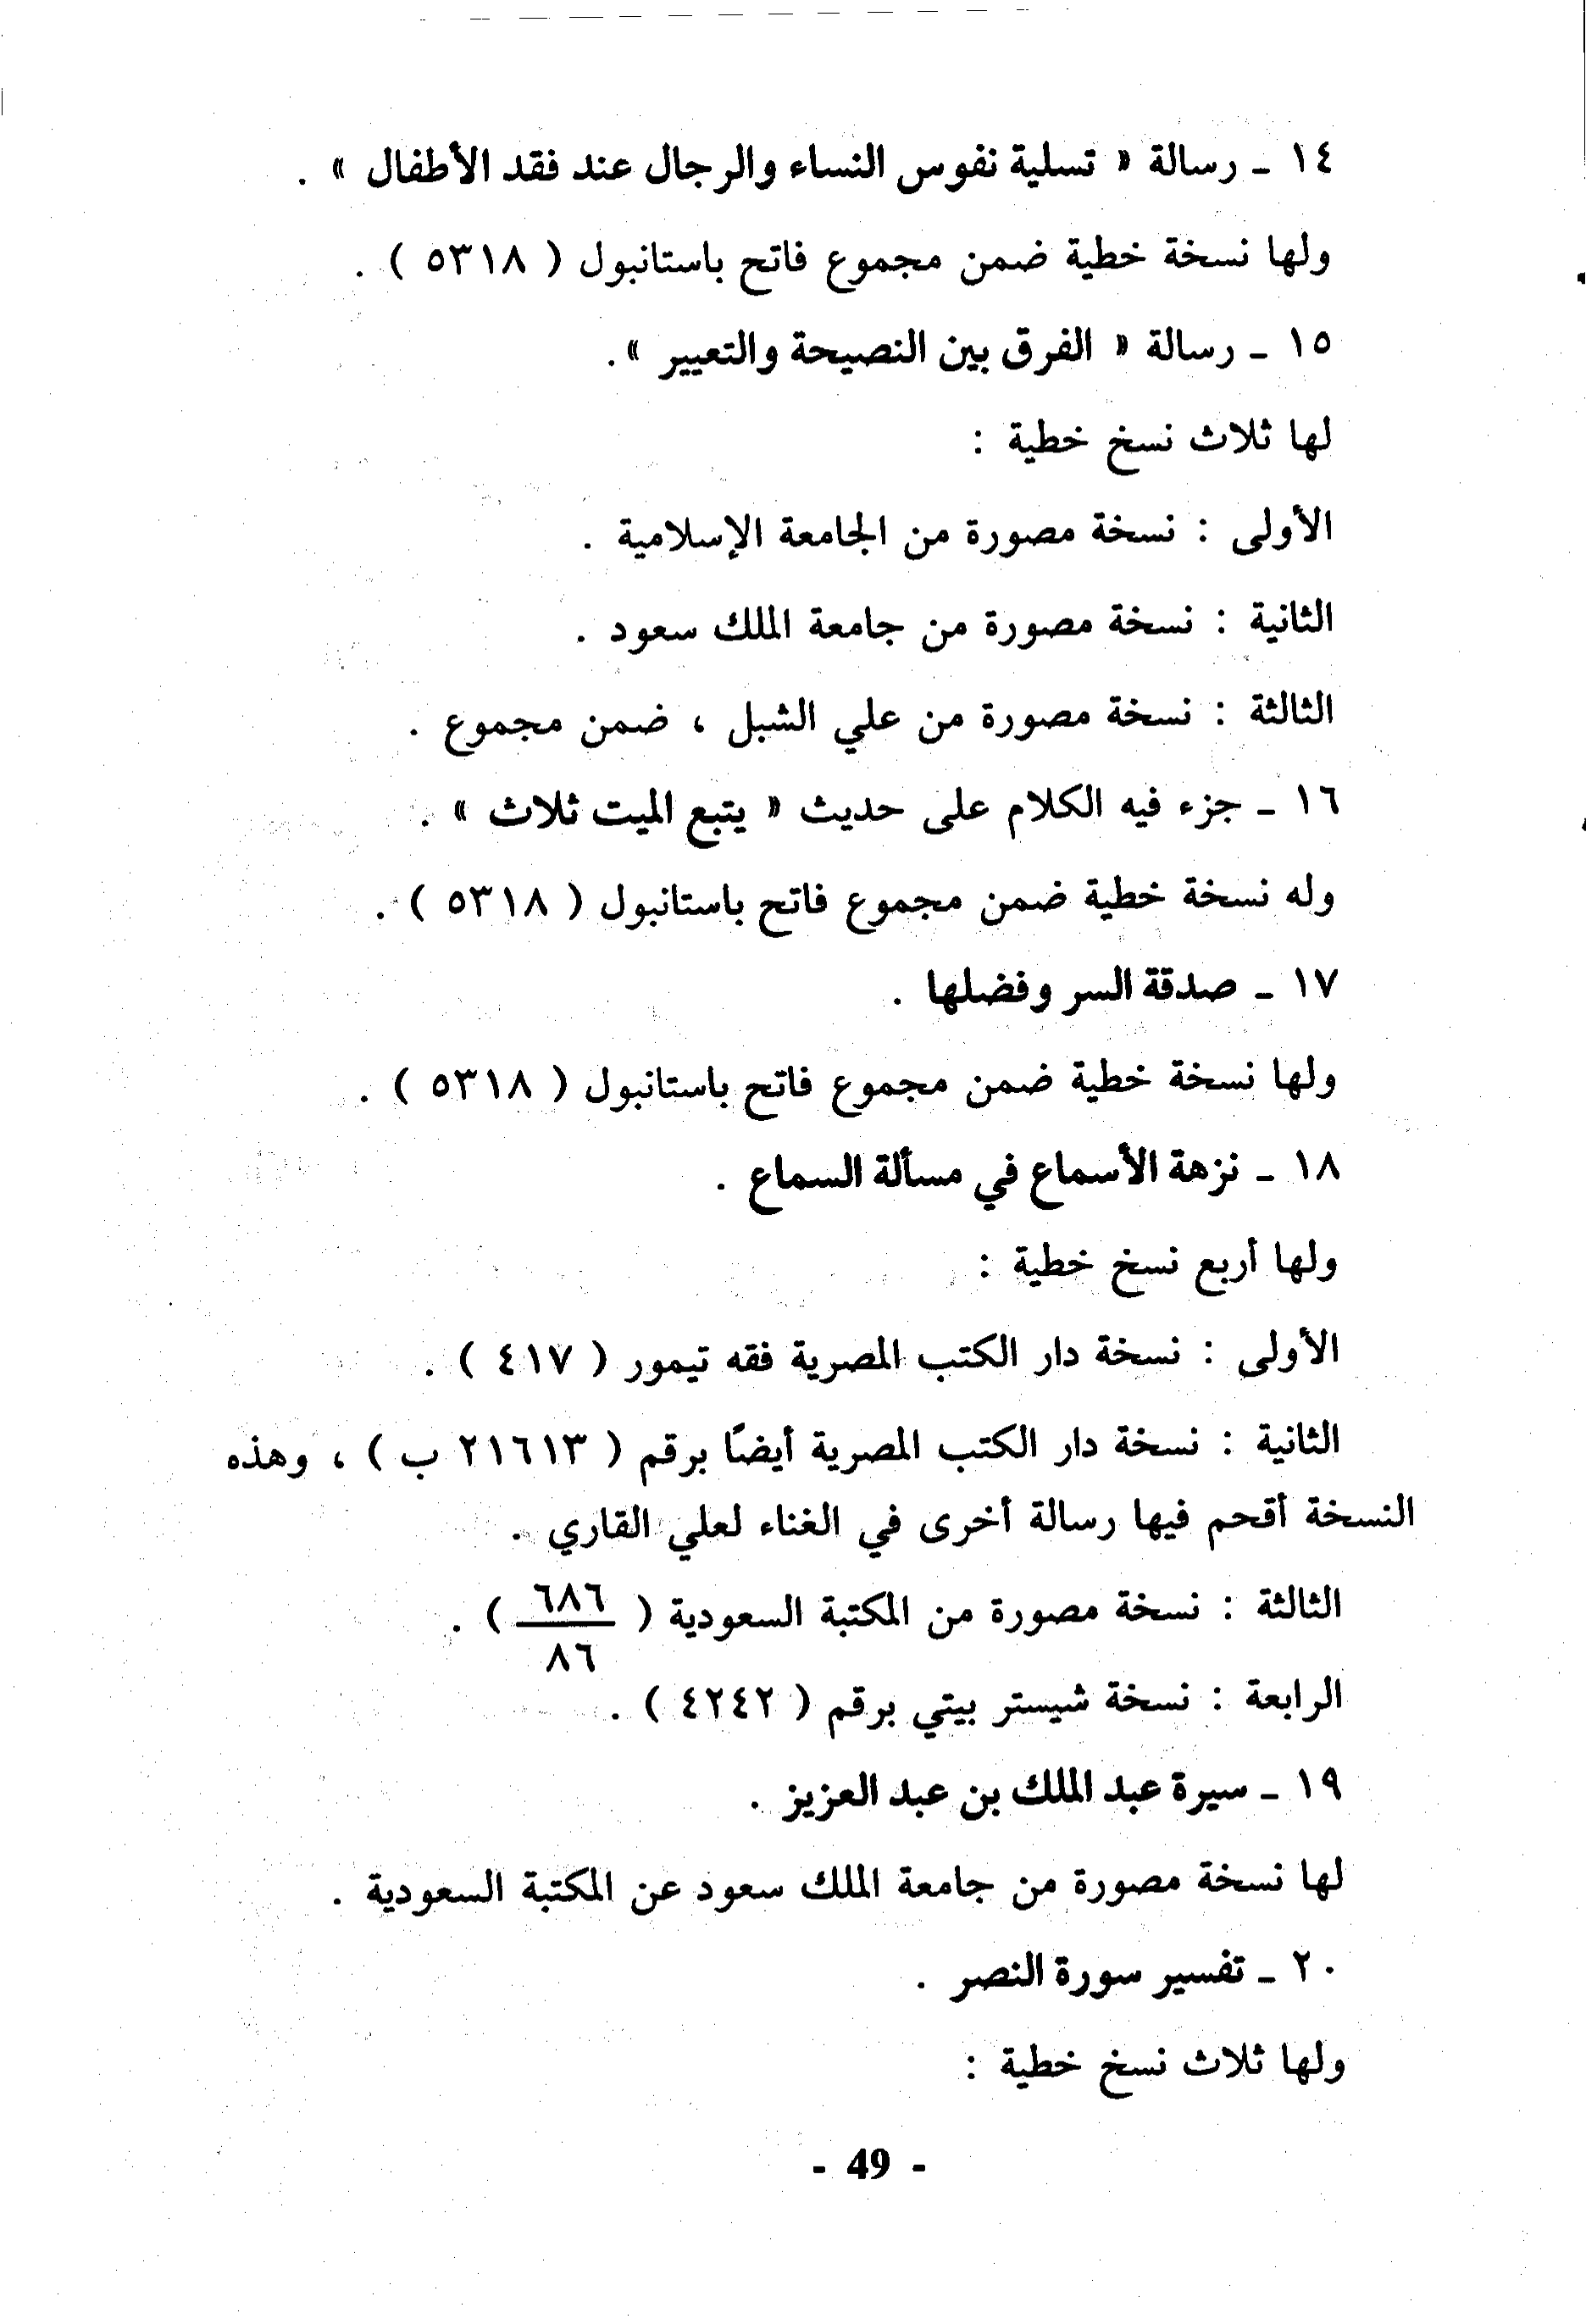 ١٤ ـ رسالة « تسلية نفوس النساء والرجال عند فقد الأطفال » .
ولها نسخة خطية ضمن مجموع فاتح باستانبول ( ٥٣١٨ ) .
١٥ ـ رسالة « الفرق بين النصيحة والتعيير » .
لها ثلاث نسخ خطية :
الأولى : نسخة مصورة من الجامعة الإسلامية .
الثانية : نسخة مصورة من جامعة الملك سعود .
الثالثة : نسخة مصورة من علي الشبل ، ضمن مجموع .
١٦ ـ جزء فيه الكلام على حديث « يتبع الميت ثلاث » .
وله نسخة خطية ضمن مجموع فاتح باستانبول ( ٥٣١٨ ) .
١٧ ـ صدقة السر وفضلها .
ولها نسخة خطية ضمن مجموع فاتح باستانبول ( ٥٣١٨ ) .
١٨ ـ نزهة الأسماع في مسألة السماع .
ولها أربع نسخ خطية :
الأولى : نسخة دار الكتب المصرية فقه تيمور ( ٤١٧ ) .
الثانية : نسخة دار الكتب المصرية أيضًا برقم ( ٢١٦١٣ ب ) ، وهذه
النسخة أقحم فيها رسالة أخرى في الغناء لعلي القاري .
الثالثة : نسخة مصورة من المكتبة السعودية ( ٦٨٦/٨٦ ) .
الرابعة : نسخة شيستر بيتي برقم ( ٤٢٤٢ ) .
١٩ ـ سيرة عبد الملك بن عبد العزيز .
لها نسخة مصورة من جامعة الملك سعود عن المكتبة السعودية .
٢٠ ـ تفسير سورة النصر .
ولها ثلاث نسخ خطية :
- 49 -